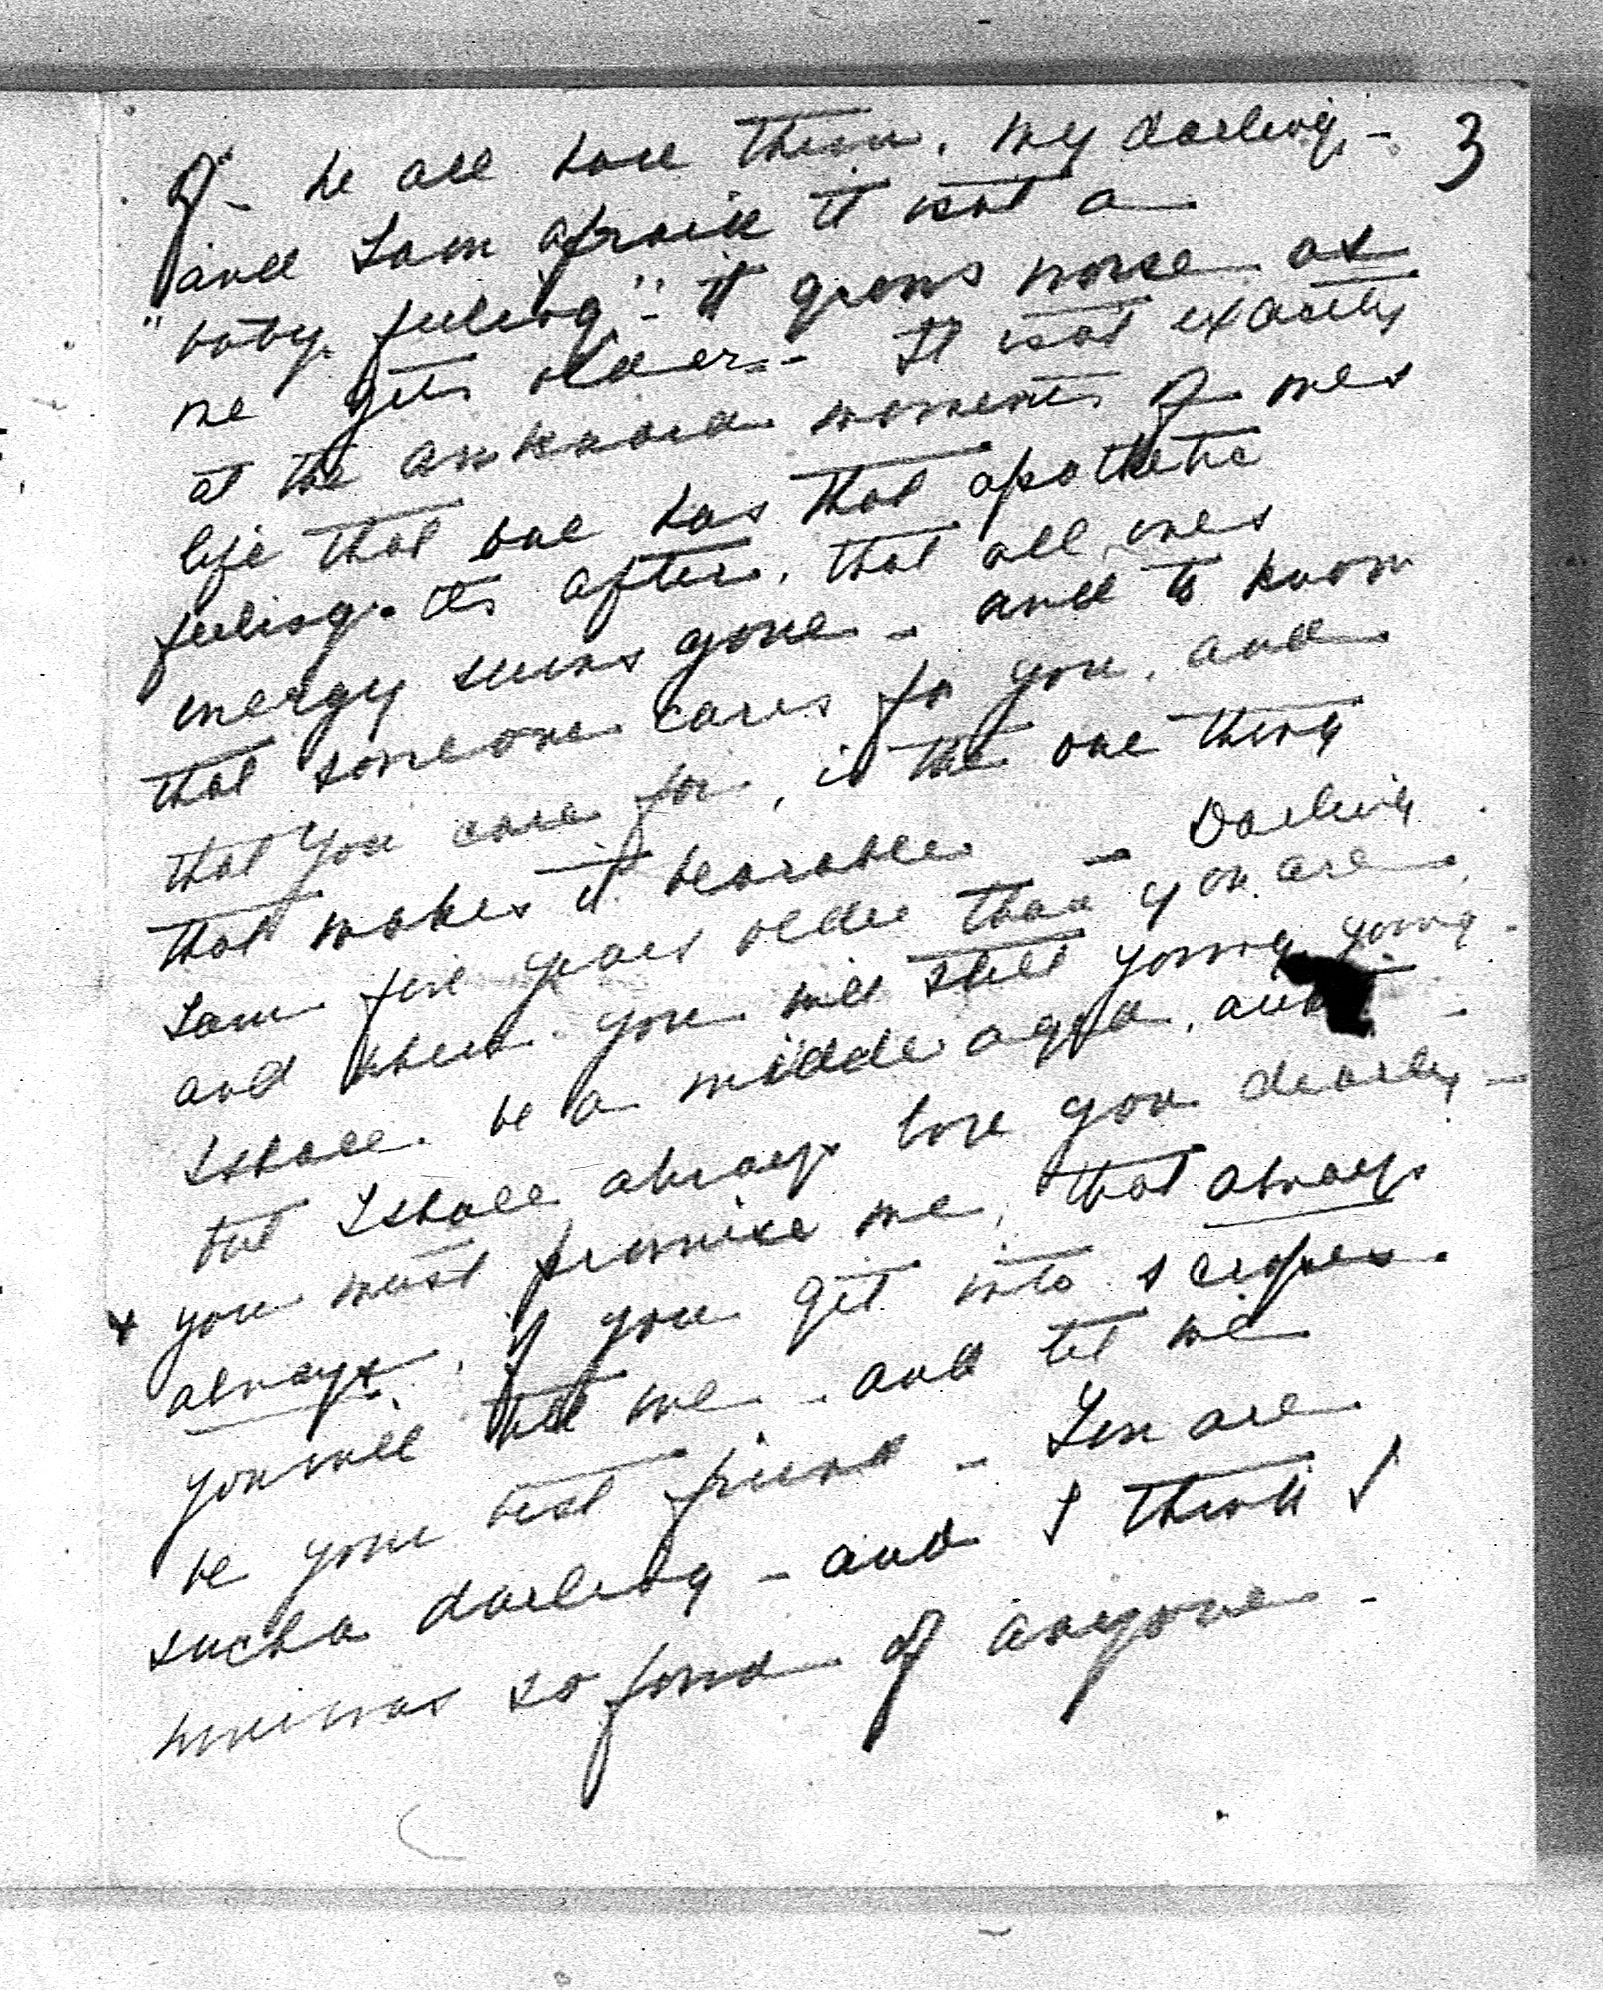 3
of - We all have them, my darling -
and I am afraid it isnt a
"baby feeling" - it grows worse as
one gets older - It isnt exactly
at the awkward moments of ones
life that one has that apathetic
feeling. its after, that all ones
energy seems gone - and to know
that someone cares for you, and
that you care for, is the one thing
that makes it bearable - Darling
I am five years older than you are,
and when you will still young young -
I shall be a middle aged, aunt -
but I shall always love you dearly -
you must promise me, that always
always, if you get into scrapes.
you will tell me - and let me
be your best friend - You are
such a darling - and I think I
never was so fond of anyone -